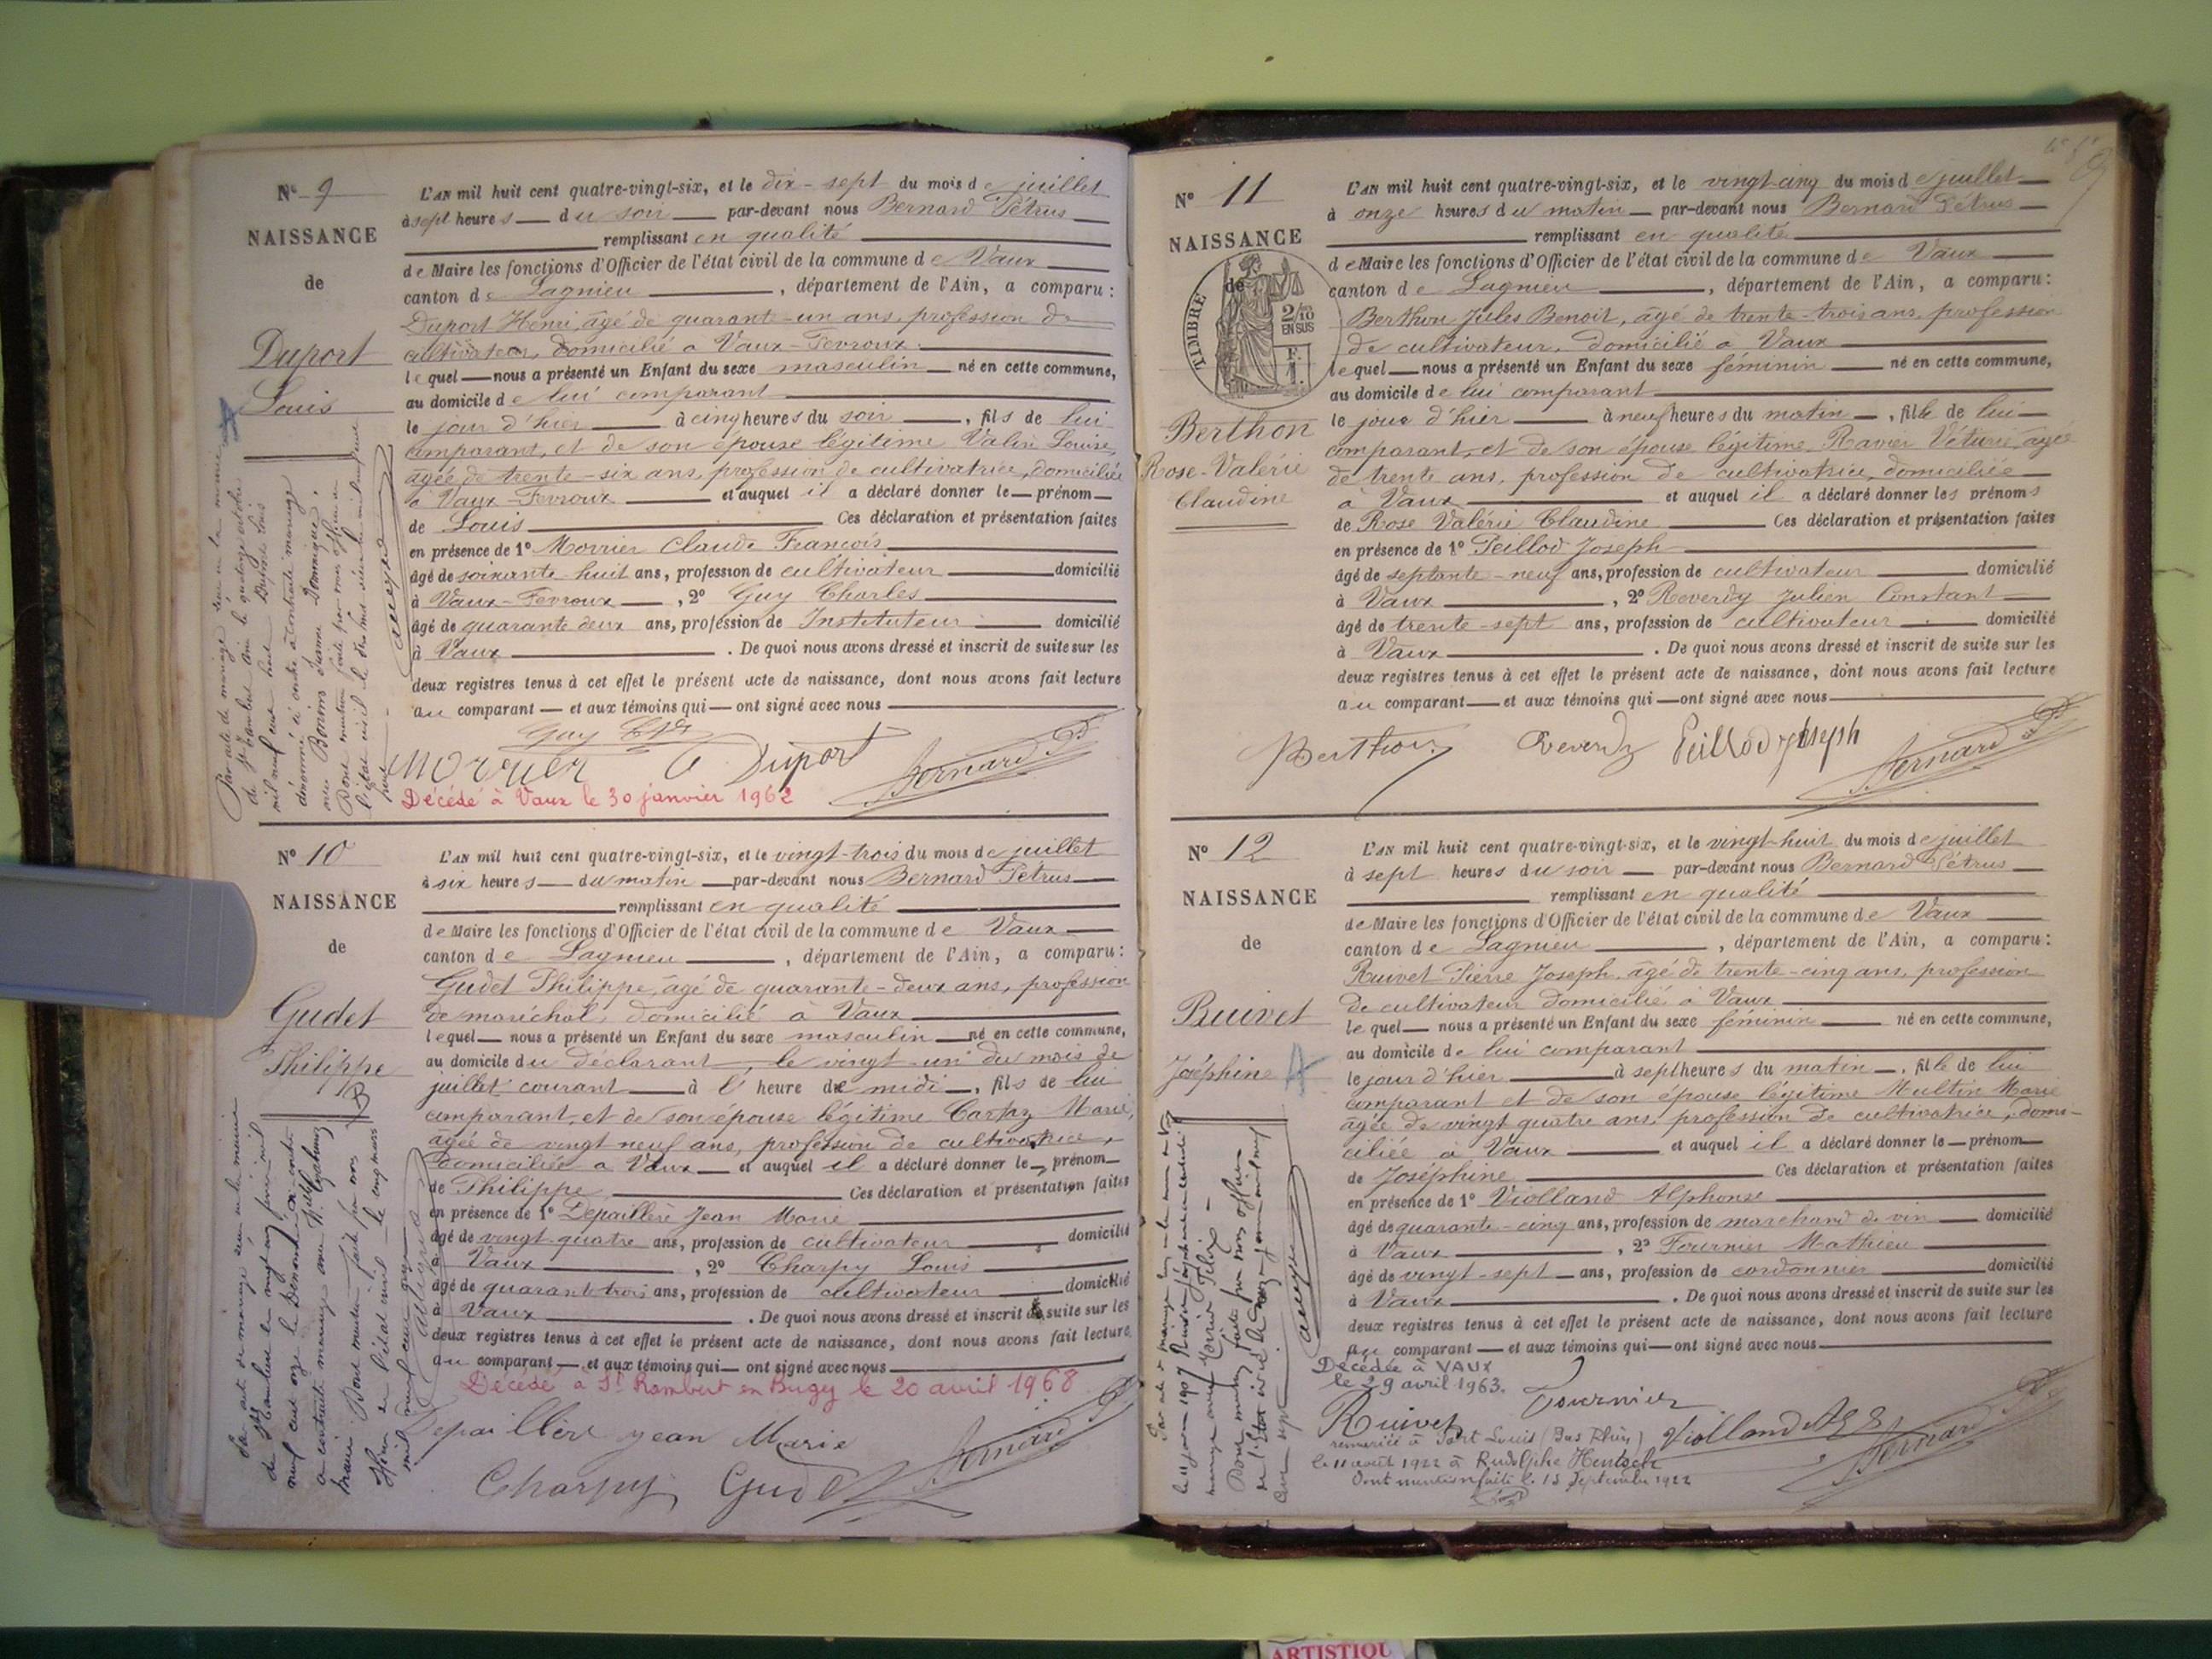 Nº 9
NAISSANCE
de
Duport
Louis
L'AN mil huit cent quatre-vingt-six, et le dix-sept du mois de juillet
à sept heures du soir par-devant nous Bernard Pétrus
remplissant en qualité
de Maire les fonctions d'Officier de l'état civil de la commune de Vaux
canton de Lagnieu, département de l'Ain, a comparu:
Duport Henri, âgé de quarante-un ans, profession de
cultivateur, domicilié à Vaux-Fevroux
lequel nous a présenté un Enfant du sexe masculin né en cette commune,
au domicile de lui comparant
le jour d'hier à cinq heures du soir, fils de lui
comparant, et de son épouse légitime Louise,
âgée de trente-six ans, profession de cultivatrice, domiciliée
à Vaux-Fevroux et auquel il a déclaré donner le prénom
de Louis Ces déclaration et présentation faites
en présence de 1º Morrier Claude François
âgé de soixante-huit ans, profession de cultivateur domicilié
à Vaux-Fevroux, 2º Guy Charles
âgé de quarante deux ans, profession de Instituteur domicilié
à Vaux. De quoi nous avons dressé et inscrit de suite sur les
deux registres tenus à cet effet le présent acte de naissance, dont nous avons fait lecture
au comparant et aux témoins qui ont signé avec nous
Guy Ch
Morrier Duport Bernard P
Décédé à Vaux le 30 janvier 1962
Nº 10
NAISSANCE
de
Gudet
Philippe
L'AN mil huit cent quatre-vingt-six, et le vingt-trois du mois de juillet
à six heures du matin par-devant nous Bernard Pétrus
remplissant en qualité
de Maire les fonctions d'Officier de l'état civil de la commune de Vaux
canton de Lagnieu, département de l'Ain, a comparu:
Gudet Philippe, âgé de quarante-deux ans, profession
de maréchal, domicilié à Vaux
lequel nous a présenté un Enfant du sexe masculin né en cette commune,
au domicile du déclarant, le vingt-un du mois de
juillet courant à l'heure de midi, fils de lui
comparant, et de son épouse légitime Marie,
âgée de vingt neuf ans, profession de cultivatrice,
domiciliée à Vaux et auquel il a déclaré donner le prénom
de Philippe Ces déclaration et présentation faites
en présence de 1º Depaillère Jean Marie
âgé de vingt-quatre ans, profession de cultivateur domicilié
à Vaux, 2º Charpy Louis
âgé de quarante-trois ans, profession de cultivateur domicilié
à Vaux. De quoi nous avons dressé et inscrit de suite sur les
deux registres tenus à cet effet le présent acte de naissance, dont nous avons fait lecture
au comparant et aux témoins qui ont signé avec nous
Décédé à St Rambert en Bugey le 20 avril 1968
Depaillère Jean Marie Bernard P
Charpy Gudet
Nº 11
NAISSANCE
de
TIMBRE
2/10
EN SUS
Berthon
Rose-Valérie
Claudine
L'AN mil huit cent quatre-vingt-six, et le vingt-cinq du mois de juillet
à onze heures du matin par-devant nous Bernard Pétrus
remplissant en qualité
de Maire les fonctions d'Officier de l'état civil de la commune de Vaux
canton de Lagnieu, département de l'Ain, a comparu:
Berthon Jules Benoit, âgé de trente-trois ans, profession
de cultivateur, domicilié à Vaux
lequel nous a présenté un Enfant du sexe féminin né en cette commune,
au domicile de lui comparant
le jour d'hier à neuf heures du matin, fille de lui
comparant, et de son épouse légitime Ravier Véturie, âgée
de trente ans, profession de cultivatrice, domiciliée
à Vaux et auquel il a déclaré donner les prénoms
de Rose Valérie Claudine Ces déclaration et présentation faites
en présence de 1º Peillod Joseph
âgé de septante-neuf ans, profession de cultivateur domicilié
à Vaux, 2º Reverdy Julien Constant
âgé de trente-sept ans, profession de cultivateur domicilié
à Vaux. De quoi nous avons dressé et inscrit de suite sur les
deux registres tenus à cet effet le présent acte de naissance, dont nous avons fait lecture
au comparant et aux témoins qui ont signé avec nous
Berthon Reverdy Peillod Joseph Bernard P
Nº 12
NAISSANCE
de
Ruivet
Joséphine
L'AN mil huit cent quatre-vingt-six, et le vingt-huit du mois de juillet
à sept heures du soir par-devant nous Bernard Pétrus
remplissant en qualité
de Maire les fonctions d'Officier de l'état civil de la commune de Vaux
canton de Lagnieu, département de l'Ain, a comparu:
Ruivet Pierre Joseph, âgé de trente-cinq ans, profession
de cultivateur domicilié à Vaux
lequel nous a présenté un Enfant du sexe féminin né en cette commune,
au domicile de lui comparant
le jour d'hier à sept heures du matin, fille de lui
comparant et de son épouse légitime Multin Marie
âgée de vingt quatre ans, profession de cultivatrice, domi-
ciliée à Vaux et auquel il a déclaré donner le prénom
de Joséphine Ces déclaration et présentation faites
en présence de 1º Violland Alphonse
âgé de quarante-cinq ans, profession de marchand de vin domicilié
à Vaux, 2º Fournier Mathieu
âgé de vingt-sept ans, profession de cordonnier domicilié
à Vaux. De quoi nous avons dressé et inscrit de suite sur les
deux registres tenus à cet effet le présent acte de naissance, dont nous avons fait lecture
au comparant et aux témoins qui ont signé avec nous
Décédée à VAUX
le 29 avril 1963.
Fournier
Ruivet Violland Bernard P
remariée à Fort Louis (Bas Rhin)
le 11 août 1922 à Rudolphe Hentsch
Dont mention faite le 15 Septembre 1922
ARTISTIQU